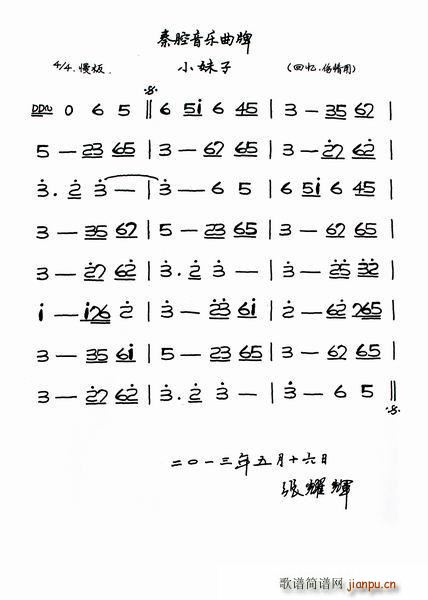 秦腔音乐曲牌
4/4 慢板. 小妹子 (回忆、伤情用)
0 6 5 ‖ 6 5i 6 45 | 3 — 35 62 |
5 — 23 65 | 3 — 62 65 | 3 — 27 62 |
3. 2 3 — | 3 — 6 5 | 6 5i 6 45 |
3 — 35 62 | 5 — 23 65 | 3 — 62 65 |
3 — 27 62 | 3. 2 3 — | 3 — 25 32 |
i — i26 2 | 3 — 23 6i | 2 — 62 265 |
3 — 35 6i | 5 — 23 65 | 3 — 62 65 |
3 — 27 62 | 3. 2 3 — | 3 — 6 5 ‖
二〇一三年五月十六日
张耀辉
歌谱简谱网
jianpu.cn